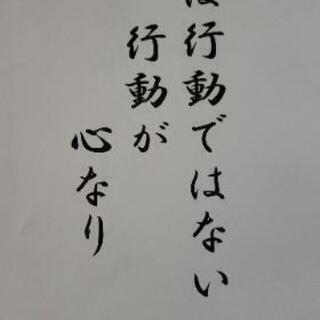 は行動ではない
行動が
心なり